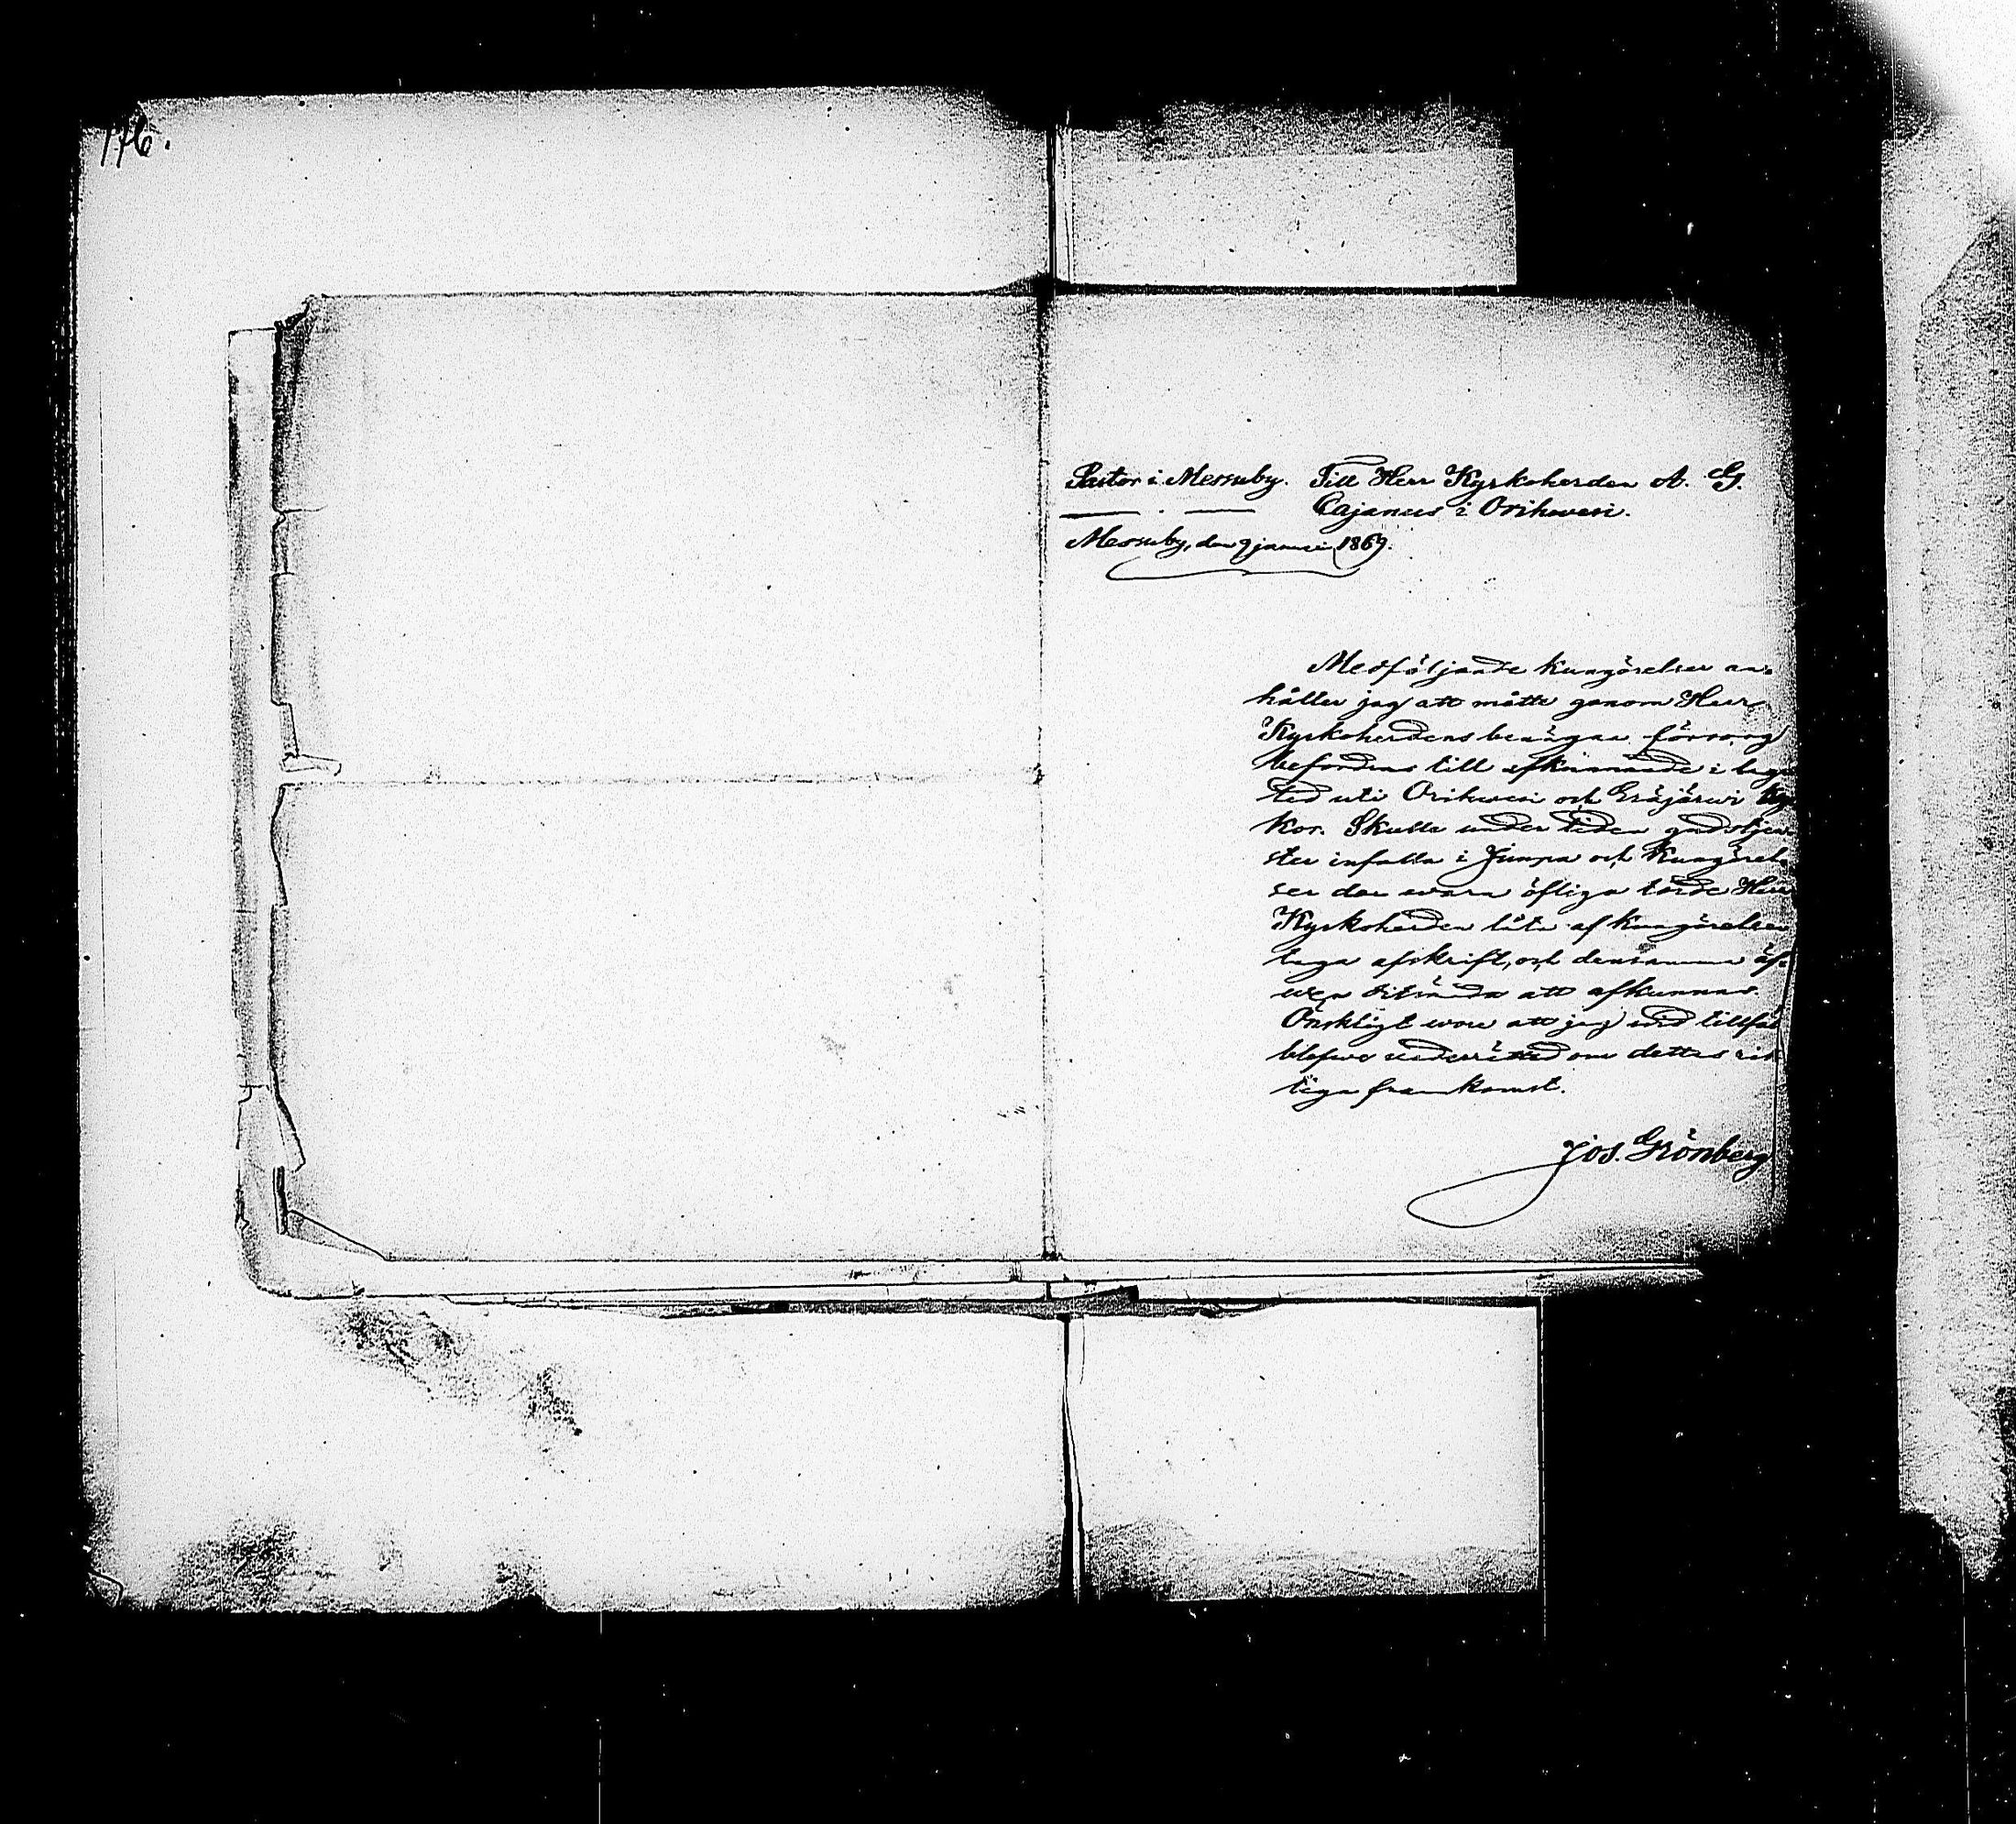 176.
Pastor i Messuby. Till Herr Kyrkoherden A. G.
Cajanus i Orihwesi.
Messuby, den 9 januari 1869.
Medföljande kungörelser an-
håller jag att måtte genom Herr
Kyrkoherdens benägna försorg
befordras till afkunnande i lag
tid uti Orihwesi och Eräjärwi Kyr
kor. Skulle under tiden gudstjen-
ster infalla i Jumpa och Kungörel-
ser der wara öfliga torde Herr
Kyrkoherden låta af kungörelsen
taga afskrift, och densamma äf-
wen ditsända att afkunnas.
Önskligt wore att jag wid tillfäl
blefwe underrättad om dettas rik
tiga framkomst.
Jos. Grönberg